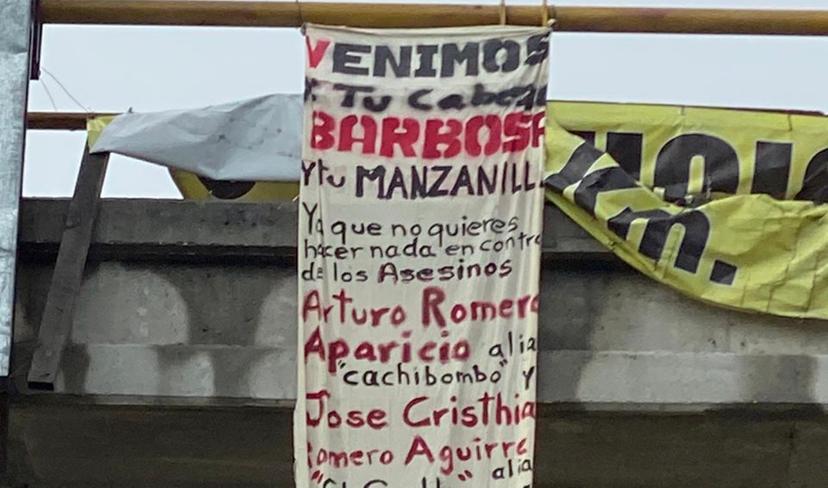 VENIMOS
X Tu Cabeza
BARBOSA
Y tu MANZANILL
Ya que no quieres
hacer nada en contra
de los Asesinos
Arturo Romero
Aparicio alia
"cachibombo" y
Jose Cristhia
Romero Aguirre
alia
m.